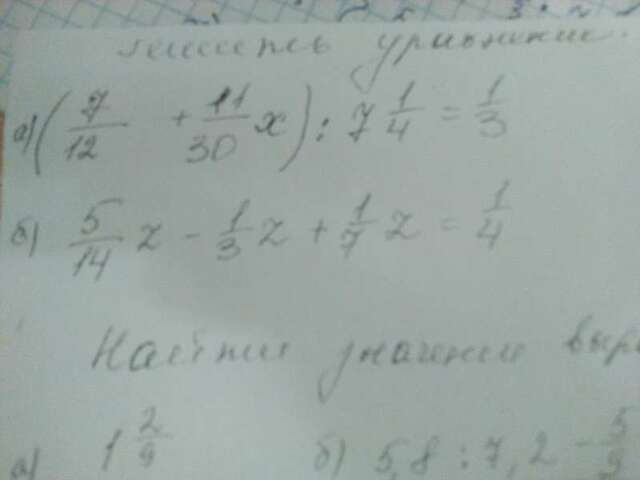 решить уравнение.
а) (7/12 + 11/30 x) : 7 1/4 = 1/3
б) 5/14 z - 1/3 z + 1/7 z = 1/4
Найти значение выра
а) 1 2/9 б) 5,8 : 7,2 - 5/9